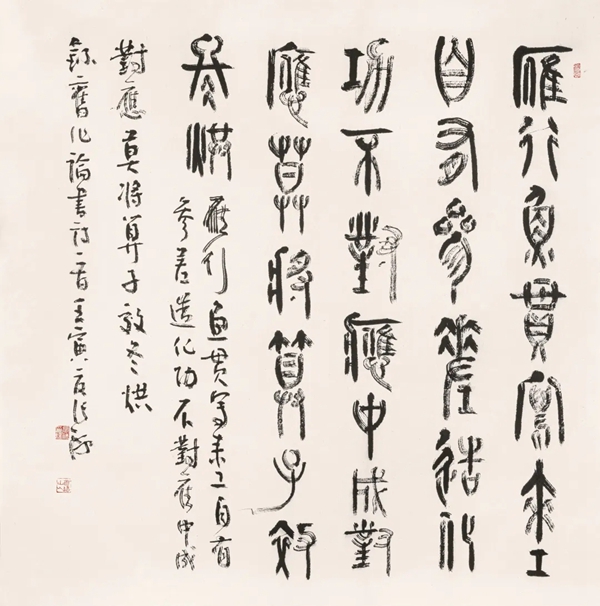 雁行魚貫寫未工
自有參差造化
功不對應中成對
應莫將算子效
冬烘
雁行魚貫寫未工自有
參差造化功不對應中成
對應莫將算子效冬烘
錄舊作論書詩一首壬寅